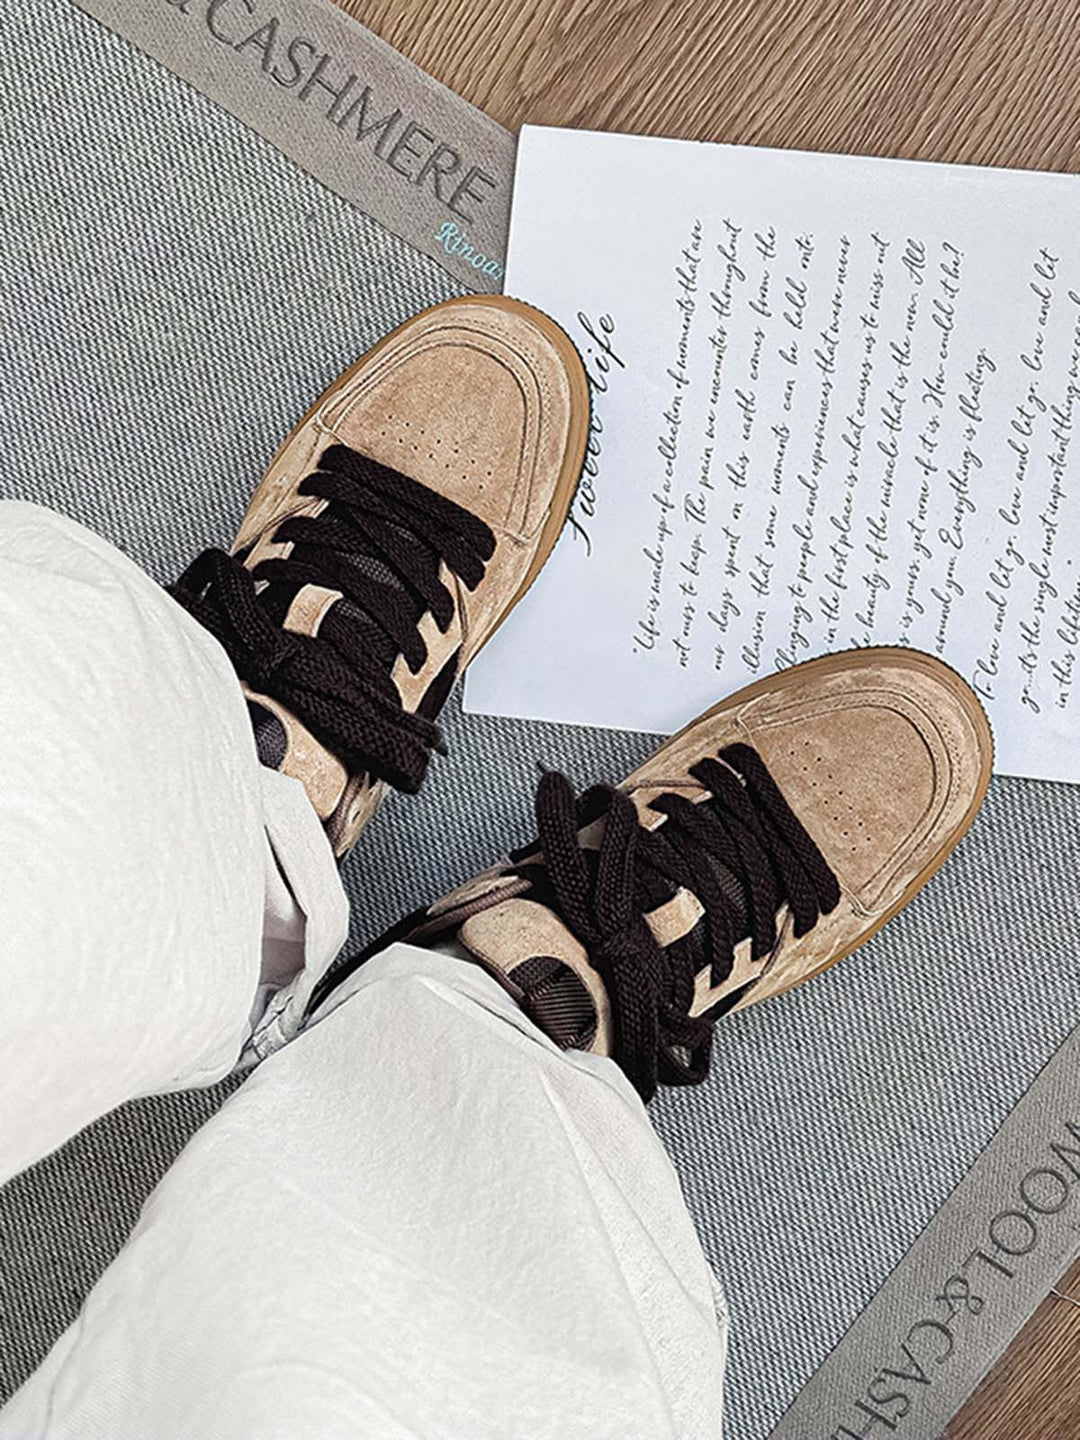 & CASHMERE
Rinoa
life
"Life is made up of a collection of moments that are
not ours to keep. The pain we encounter throughout
our days spent on this earth comes from the
illusion that some moments can be held onto.
Clinging to people and experiences that were never
in the first place is what causes us to miss out
beauty of the miracle that is the now. All
is yours, yet none of it is. How could it be?
around you. Everything is fleeting.
To love and let go, love and let go, love and let
go...it's the single most important thing we
in this lifetime."
WOOL & CASH